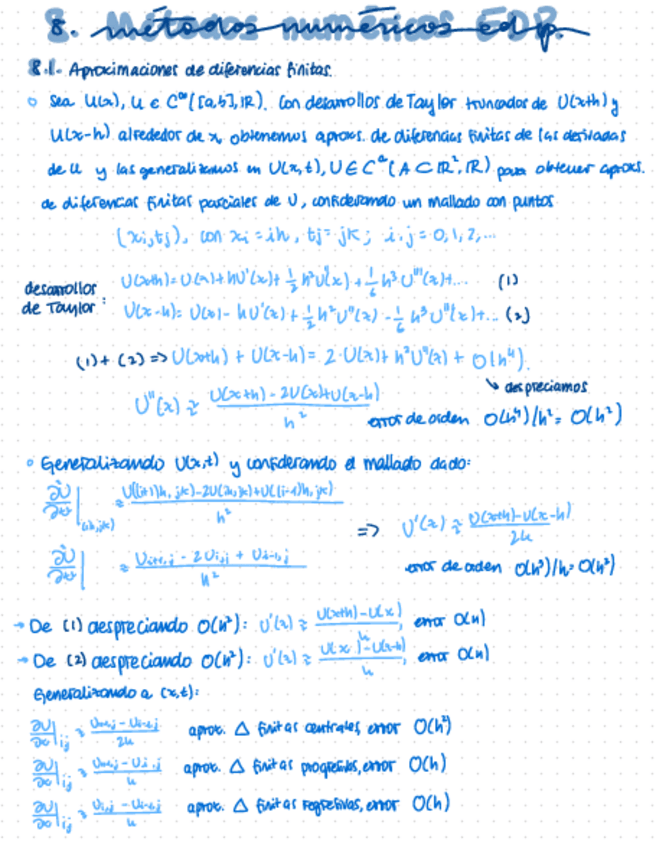 8. métodos numéricos EDP.
8.1. Aproximaciones de diferencias finitas.
○ Sea U(x), U ∈ C^∞([a,b], IR). Con desarrollos de Taylor truncados de U(x+h) y
U(x-h) alrededor de x, obtenemos aprox. de diferencias finitas de las derivadas
de U y las generalizamos en U(x,t), U ∈ C^∞(A ⊂ IR², IR) para obtener aprox.
de diferencias finitas parciales de U, considerando un mallado con puntos
(xi, tj), con xi = ih, tj = jk; i,j = 0,1,2,...
desarrollos de Taylor:
U(x+h) = U(x) + hU'(x) + 1/2 h²U''(x) + 1/6 h³U'''(x) + ... (1)
U(x-h) = U(x) - hU'(x) + 1/2 h²U''(x) - 1/6 h³U'''(x) + ... (2)
(1) + (2) => U(x+h) + U(x-h) = 2·U(x) + h²U''(x) + O(h⁴).
↘ despreciamos
U''(x) ≈ (U(x+h) - 2U(x) + U(x-h)) / h²
error de orden O(h⁴)/h² = O(h²)
○ Generalizando U(x,t) y considerando el mallado dado:
|(ih,jk) ≈ (U((i+1)h, jk) - 2U(ih, jk) + U((i-1)h, jk)) / h²
≈ (Ui+1,j - 2Ui,j + Ui-1,j) / h²
=> U'(x) ≈ (U(x+h) - U(x-h)) / 2h
error de orden O(h³)/h = O(h²)
→ De (1) despreciando O(h²): U'(x) ≈ (U(x+h) - U(x)) / h, error O(h)
→ De (2) despreciando O(h²): U'(x) ≈ (U(x) - U(x-h)) / h, error O(h)
Generalizando a (x,t):
∂U/∂x |ij ≈ (Ui+1,j - Ui-1,j) / 2h aprox. △ finitas centrales, error O(h²)
∂U/∂x |ij ≈ (Ui+1,j - Ui,j) / h aprox. △ finitas progresivas, error O(h)
∂U/∂x |ij ≈ (Ui,j - Ui-1,j) / h aprox. △ finitas regresivas, error O(h)